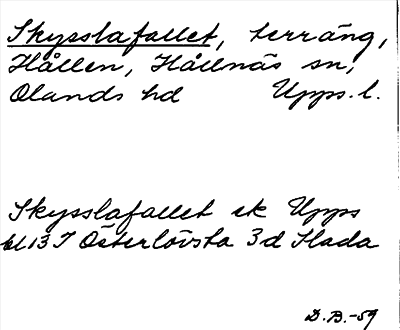 Skysslafallet, terräng,
Hållen, Hållnäs sn,
Olands hd Upps. l.
Skysslafallet ek Upps
bl 13 I Österlövsta 3d Slada
D.B.-59